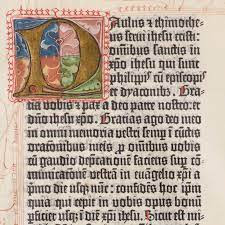 Paulus & thimothe-
us serui ihesu cristi:
omnibus sanctis in
xpo ihesu qui sunt
philippis cu episcopis
et dyaconibus. Gratia
vobis & pax a deo patre nostro: et
dno ihesu xpo. Gratias ago deo meo
in omni memoria vestri semp i cunctis
oracionibus meis p omnibus vobis
cu gaudio depcationē faciens sup co-
municatione vestra in euāgelio xpi a
pma die usq; nunc: confidēs hoc ipm
quia qui cepit in vobis opus bonū
pficiet usq; i diē xpi ihesu. Sicut est mi-